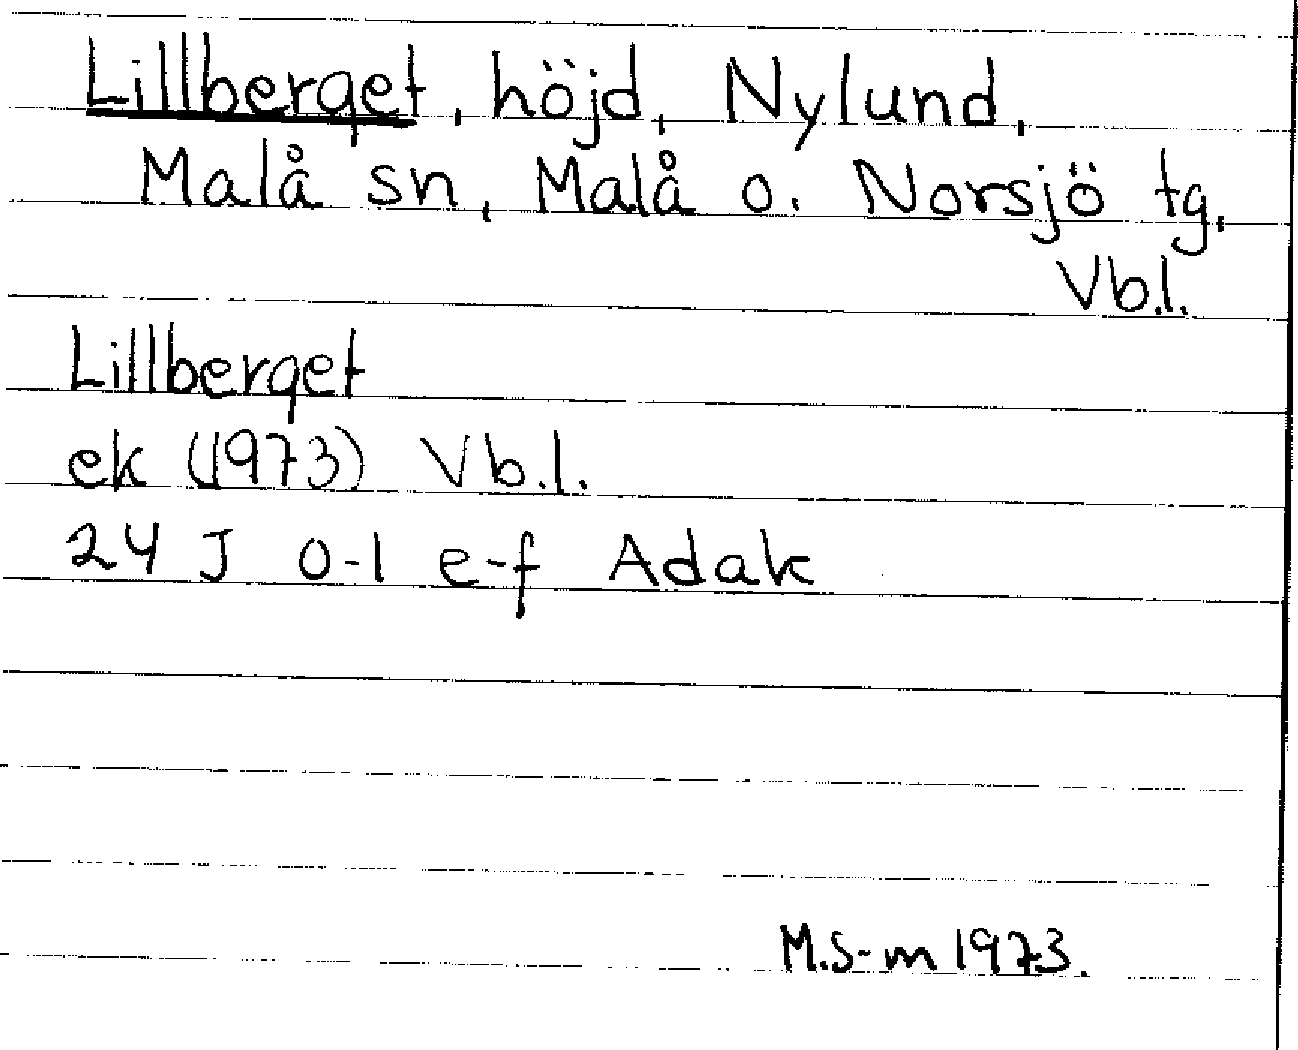 Lillberget, höjd, Nylund,
Malå sn, Malå o. Norsjö tg,
Vb.l.
Lillberget
ek (1973) Vb.l.
24 J 0-1 e-f Adak
M.S-m 1973.